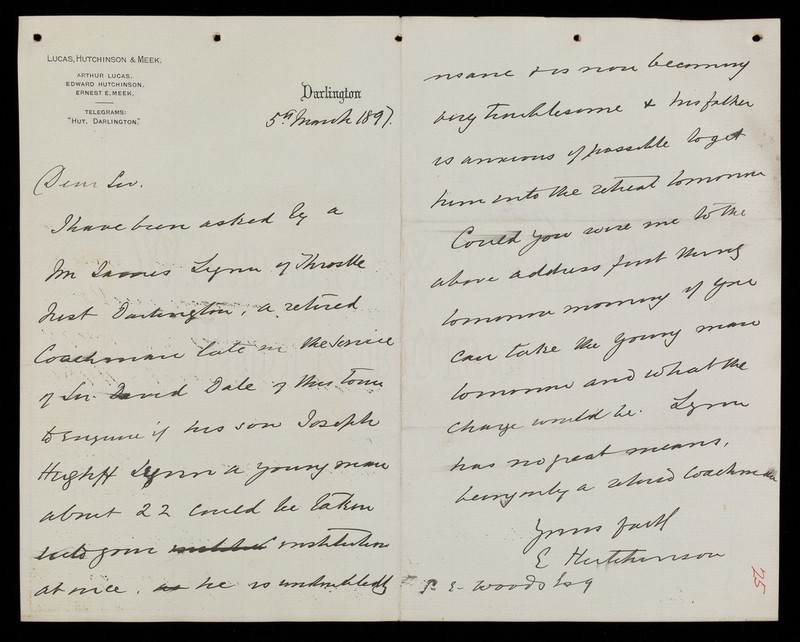 LUCAS, HUTCHINSON & MEEK.
ARTHUR LUCAS.
EDWARD HUTCHINSON.
ERNEST E. MEEK.
TELEGRAMS:
"HUT, DARLINGTON."
Darlington
5th March 1897.
Dear Sir.
I have been asked by a
Mr James Lynn of Throstle
Nest Darlington, a retired
Coachman late in the service
of Sir David Dale of this town
to enquire if his son Joseph
Lynn a young man
about 22 could be taken
into your institution
at once. as he is undoubtedly
insane & is now becoming
very troublesome & his father
is anxious if possible to get
him into the retreat tomorrow
Could you wire me to the
above address first thing
tomorrow morning if you
can take the young man
tomorrow and what the
charge would be. Lynn
has no great means,
being only a retired Coachman
Yours faith
E Hutchinson
R E Woods Esq